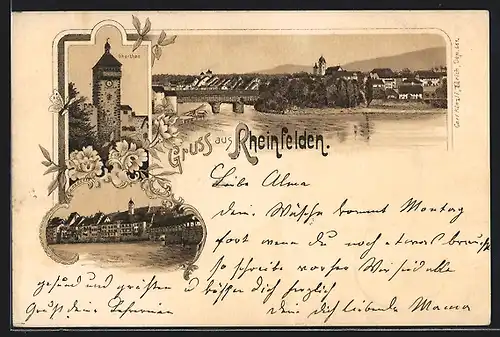 Oberthor.
Gruss aus Rheinfelden.
Liebe Alma
dein Wäsche kommt Montag
fort wenn du noch etwas brauchst
so schreibe vorher Wir sind alle
gesund und grüßen u küssen dich herzlich
Grüß deine
dein dich liebende Mama